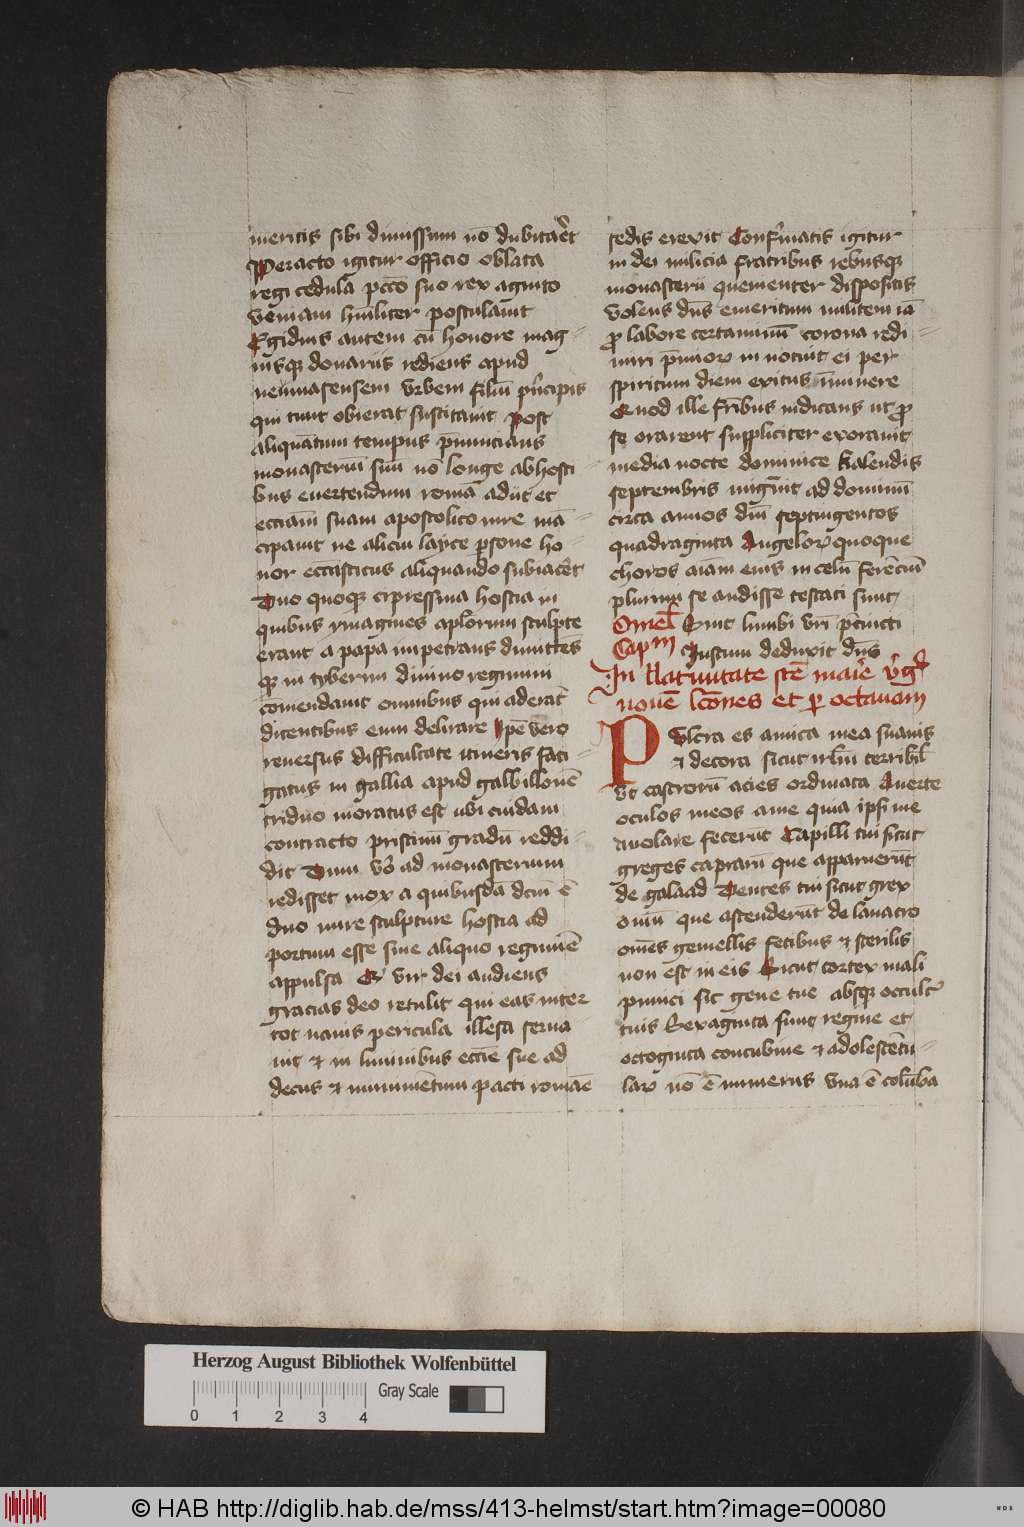 meritis sibi dimissum nō dubitaēt
Peracto igitur officio oblata
regi cedula pctō suo rex agnito
veniam hūiliter postulauit
Egidius autem cū honore mag-
nisqz donariis rediens apud
neumasensem vrbem filiū prīcipis
qui tunc obierat suscitauit Post
aliquātum tempus pnuncians
monasteriū suū nō longe ab hosti-
bus euertendum romā adiit et
ecciam suam apostolico iure mā-
cipauit ne alicui layce psone ho-
nor ecciasticus aliquando subiacēt
Duo quoqz cipressina hostia in
quibus ymagines aplorum sculpte
erant a papa impetrans dimittēs
qz in tyberim diuino regimini
cōmendauit omnibus qui aderāt
dicentibus eum delirare Ipē vero
reuersus difficultate itineris fati-
gatus in gallia apud galbillonē
triduo moratus est vbi cuidam
contracto pristinū gradū reddi-
dit Dum vō ad monasterium
redisset mox a quibusdā dcm ē
duo mire sculpture hostia ad
portum esse sine aliquo regimīe
appulsa Et vir dei audiens
gracias deo retulit qui eas inter
tot nauis pericula illesa serua
uit et in liminibus eccie sue ad
decus et munimētum pacti romāe
sedis erexit Confirmatis igitur
in dei milicia fratribus rebusqz
monasterii quementer dispositis
volens dns emeritum militem iā
pro labore certaminū corona redi-
miri pmior innotuit ei per
spiritum diem exitus iminere
Quod ille fribus indicans ut pro
se orarent suppliciter exorauit
media nocte dominice kalendis
septembris migrauit ad dominū
circa annos dni septingentos
quadraginta Angelor quoque
choros aiam eius in celū ferēciū
plurimi se audisse testati sunt
Omel Sint lumbi vri pcincti
Capm Iustum deduxit dns
In Natiuitate scē marie virg
nouē lcōnes et p octauam
Pvlcra es amica mea suauis
et decora sicut irlm terribil
vt castrorū acies ordinata Auerte
oculos meos a me quia ipsi me
auolare fecerūt Capilli tui sicut
greges caprarū que apparuerūt
de galaad Dentes tui sicut grex
ouiū que ascenderūt de lauacro
omēs gemellis fetibus et sterilis
non est in eis Sicut cortex mali
punici sic gene tue absqz occult
tuis Sexaginta sunt regine et
octoginta concubine et adolescētu-
lar nō ē numerus vna ē colūba
Herzog August Bibliothek Wolfenbüttel
Gray Scale
0 1 2 3 4
© HAB http://diglib.hab.de/mss/413-helmst/start.htm?image=00080